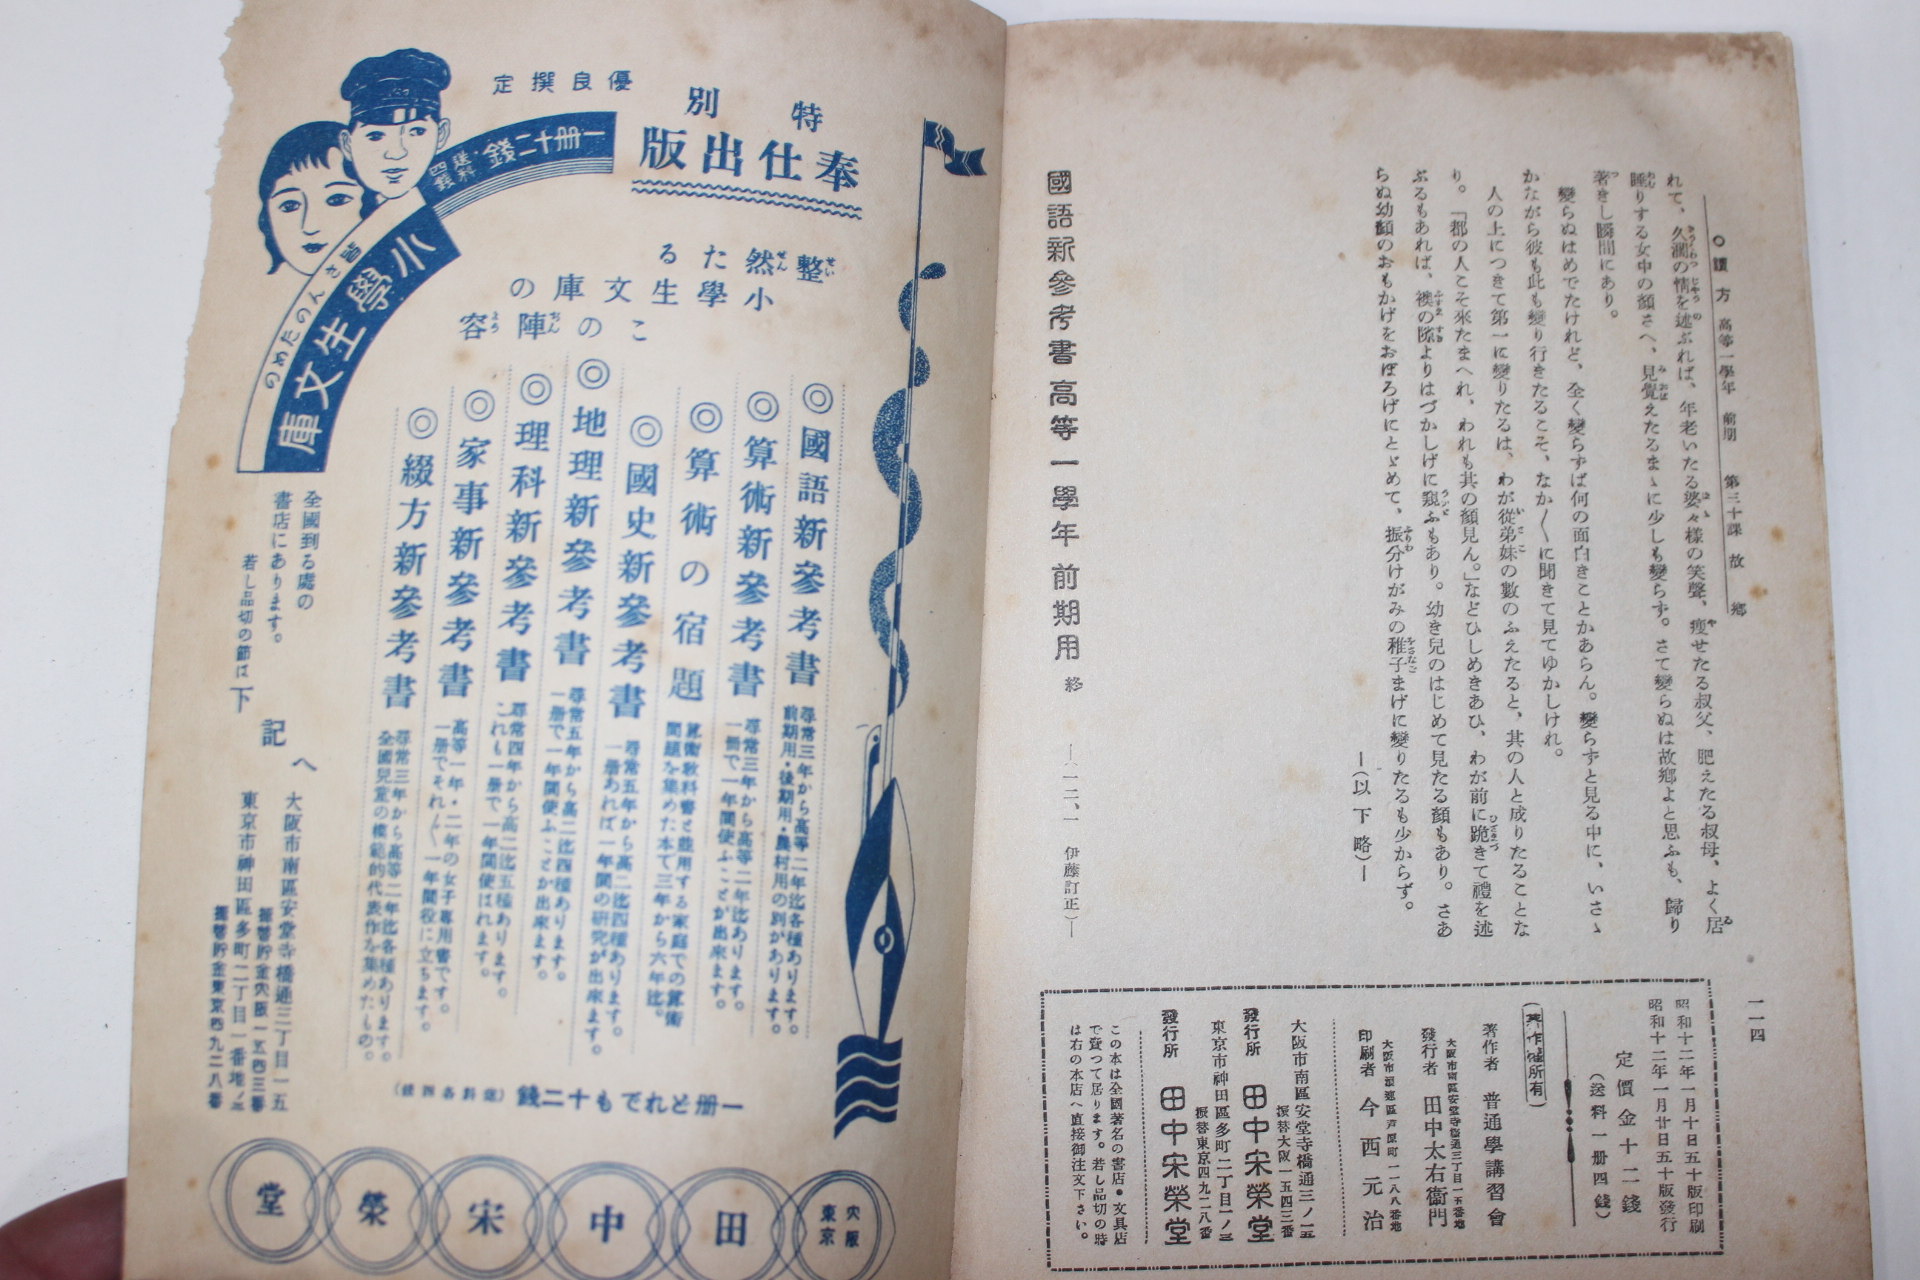 ○讀方 高等一學年 前期 第三十課 故鄕
一一四
れて、久濶の情を述ぶれば、年老いたる婆々樣の笑聲、瘦せたる叔父、肥えたる叔母、よく居
睡りする女中の顏さへ、見覺えたるまゝに少しも變らず。さて變らぬは故鄕よと思ふも、歸り
著きし瞬間にあり。
變らぬはめでたけれど、全く變らずば何の面白きことかあらん。變らずと見る中に、いさゝ
かながら彼も此も變り行きたるこそ、なか〱に聞きて見てゆかしけれ。
人の上につきて第一に變りたるは、わが從弟妹の數のふえたると、其の人と成りたることな
り。「都の人こそ來たまへれ、われも其の顏見ん。」などひしめきあひ、わが前に跪きて禮を述
ぶるもあれば、襖の隙よりはづかしげに窺ふもあり。幼き兒のはじめて見たる顏もあり。さあ
らぬ幼顏のおもかげをおぼろげにとゞめて、振分けがみの稚子まげに變りたるも少からず。
―(以下略)―
國語新參考書高等一學年前期用 終
―一二、一 伊藤訂正―
昭和十二年一月十日五十版印刷
昭和十二年一月廿日五十版發行
定價金十二錢
(送料一册四錢)
(著作權所有)
著作者 普通學講習會
大阪市南區安堂寺橋通三丁目一五番地
發行者 田中太右衞門
印刷者 今西元治
大阪市南區安堂寺橋通三ノ一五
振替大阪一五四三番
發行所 田中宋榮堂
東京市神田區多町二丁目一ノ三
振替東京四九二八番
發行所 田中宋榮堂
この本は全國著名の書店・文具店
で賣つて居ります。若し品切の時
は右の本店へ直接御注文下さい。
優良撰定
特別
奉仕出版
一册十二錢・送料四錢
小學生文庫
皆さんのための
整然たる
小學生文庫の
この陣容
◎國語新參考書 尋常三年から高等二年迄各種あります。
前期用・後期用・農村用の別があります。
◎算術新參考書 尋常三年から高等二年迄あります。
一册で一年間使ふことが出來ます。
◎算術の宿題 算術敎科書と並用する家庭での算術
問題を集めた本で三年から六年迄。
◎國史新參考書 尋常五年から高二迄四種あります。
一册あれば一年間の硏究が出來ます。
◎地理新參考書 尋常五年から高二迄四種あります。
一册で一年間使ふことが出來ます。
◎理科新參考書 尋常四年から高二迄五種あります。
これも一册で一年間使はれます。
◎家事新參考書 高等一年・二年の女子專用書です。
一册でそれ〲一年間役に立ちます。
◎綴方新參考書 尋常三年から高等二年迄各種あります。
全國兒童の模範的代表作を集めたもの。
一册どれでも十二錢(送料各四錢)
全國到る處の
書店にあります。
若し品切の節は下記へ
大阪市南區安堂寺橋通三丁目一五
振替貯金大阪一五四三番
東京市神田區多町二丁目一番地ノ三
振替貯金東京四九二八番
大阪
東京
田中宋榮堂